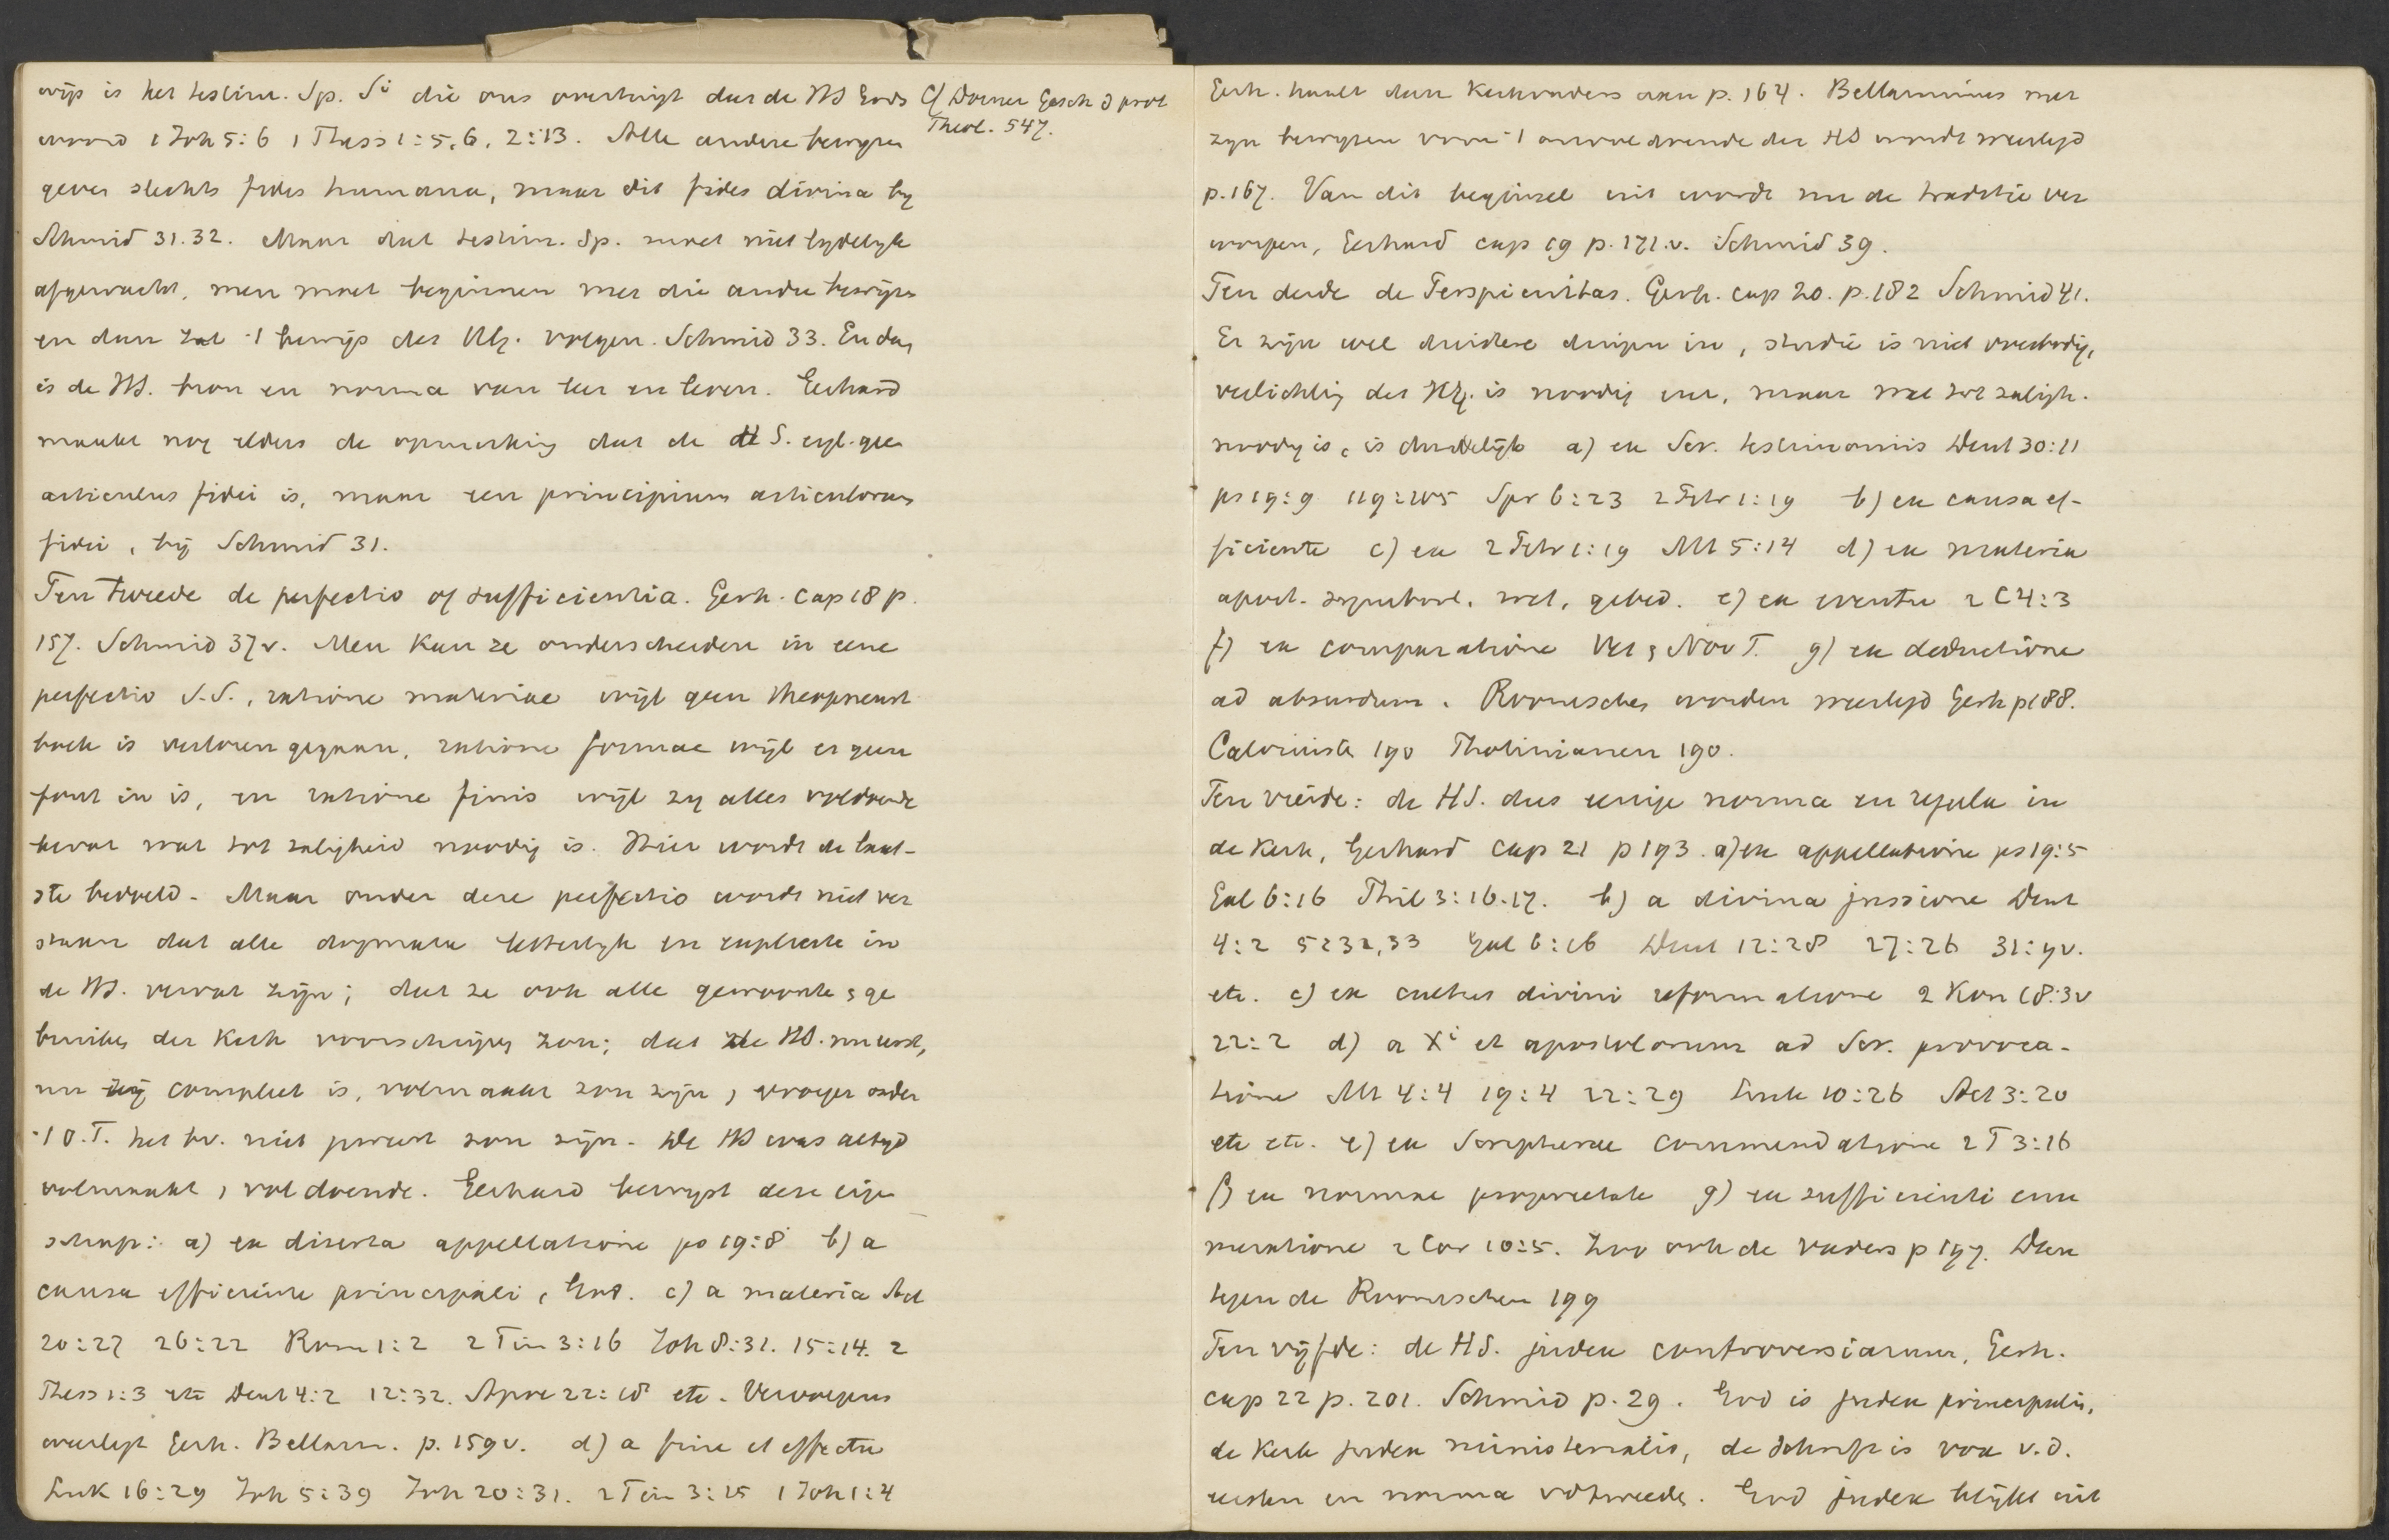 wijs is het testim. Sp. Si die ons overtuigt dat de HS Gods
woord 1 Joh 5:6 1 Thess 1:5,6, 2:13. Alle andere bewyzen
geven slechts fides humana, maar dit fides divina by
Schmid 31.32. Maar dat testim. Sp. moet niet lydelyk
afgewacht, men moet beginnen met die andre bewijzen
en dan zal 't bewijs des HG. volgen. Schmid 33. En dan
is de HS. bron en norma van leer en leven. Gerhard
maakt nog elders de opmerking dat de HS. eigl. geen
articulus fidei is, maar een principium articulorum
fidei, bij Schmid 31.
Cf Dorner Gesch d prot
Theol. 547.
Ten tweede de perfectio of sufficientia. Gerh. cap 18 p.
157. Schmid 37v. Men kan ze onderscheiden in eene
perfectio S.S., ratione materiae wijl geen theopneust
boek is verloren gegaan, ratione formae wijl er geen
fout in is, en ratione finis wijl zy alles voldoende
bevat wat tot zaligheid noodig is. Hier wordt de laat-
ste bedoeld. Maar onder deze perfectio wordt niet ver
staan dat alle dogmata letterlyk en explicite in
de HS. vervat zijn; dat ze ook alle gewoonte & ge
bruiken der Kerk voorschrijven zou; dat de HS. nu eerst,
nu zij compleet is, volmaakt zou zijn, vroeger onder
't O.T. het bv. niet geweest zou zijn. De HS was altyd
volmaakt, voldoende. Gerhard bewyst deze eigen
schap: a) ex diserta appellatione ps 19:8 b) a
causa efficiente principali, God. c) a materia Act
20:27 26:22 Rom 1:2 2 Tim 3:16 Joh 8:31. 15:14. 2
Thess 1:3 etc Deut 4:2 12:32. Apoc 22:18 etc. Vervolgens
weerlegt Gerh. Bellarm. p. 159v. d) a fine et effectu
Luk 16:29 Joh 5:39 Joh 20:31. 2 Tim 3:15 1 Joh 1:4
Gerh. haalt dan Kerkvaders aan p. 164. Bellarminus met
zyn bewyzen voor 't onvoldoende der HS wordt weerlegd
p. 167. Van dit beginsel uit wordt nu de traditie ver
worpen, Gerhard cap 19 p. 171.v. Schmid 39.
Ten derde de Perspicuitas. Gerh. cap 20. p. 182 Schmid 41.
Er zijn wel duistere dingen in, studie is niet overbodig,
verlichting des HG. is noodig enz, maar wat tot zaligh.
noodig is, is duidelijk a) ex Scr. testimoniis Deut 30:11
ps 19:9 119:105 Spr 6:23 2 Petr 1:19 b) ex causa ef-
ficiente c) ex 2 Petr 1:19 Mt 5:14 d) ex materia
apost. symbool. wet, gebed. e) ex eventu 2 C 4:3
f) ex comparatione Vet & Nov T. g) ex deductione
ad absurdum. Roomsches worden weerlegd Gerh p 188.
Calvinisten 190 Photinianen 190.
Ten vierde: de HS. dus eenige norma en regula in
de Kerk, Gerhard cap 21 p 193. a) ex appellatione ps 19:5
Gal 6:16 Phil 3:16.17. b) a divina jussione Deut
4:2 5:32,33 Gal 6:16 Deut 12:28 27:26 31:9v.
etc. c) ex cultus divini reformatione 2 Kon 18:3v
22:2 d) a Xi et apostolorum ad Scr. provoca-
tione Mt 4:4 19:4 22:29 Luk 10:26 Act 3:20
etc etc. e) ex Scripturae commendatione 2 T 3:16
f) ex normae proprietate g) ex sufficienti enu
meratione 2 Cor 10:5. Zoo ook de vaders p 197. Dan
tegen de Roomschen 199
Ten vijfde: de HS. judex controversiarum, Gerh.
cap 22 p. 201. Schmid p. 29. God is judex principalis,
de Kerk judex ministerialis, de Schrift is vox v.d.
eersten en norma vd tweede. God judex blijkt uit